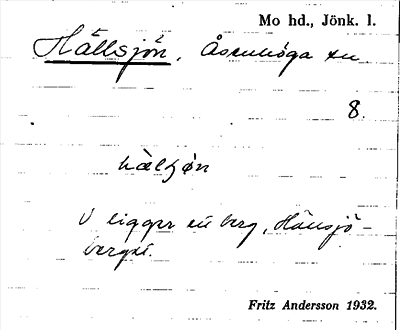 Mo hd., Jönk. l.
Hällsjön, Åsenhöga sn
8.
hälʃøn
V ligger ett berg, Hällsjö-
berget.
Fritz Andersson 1932.